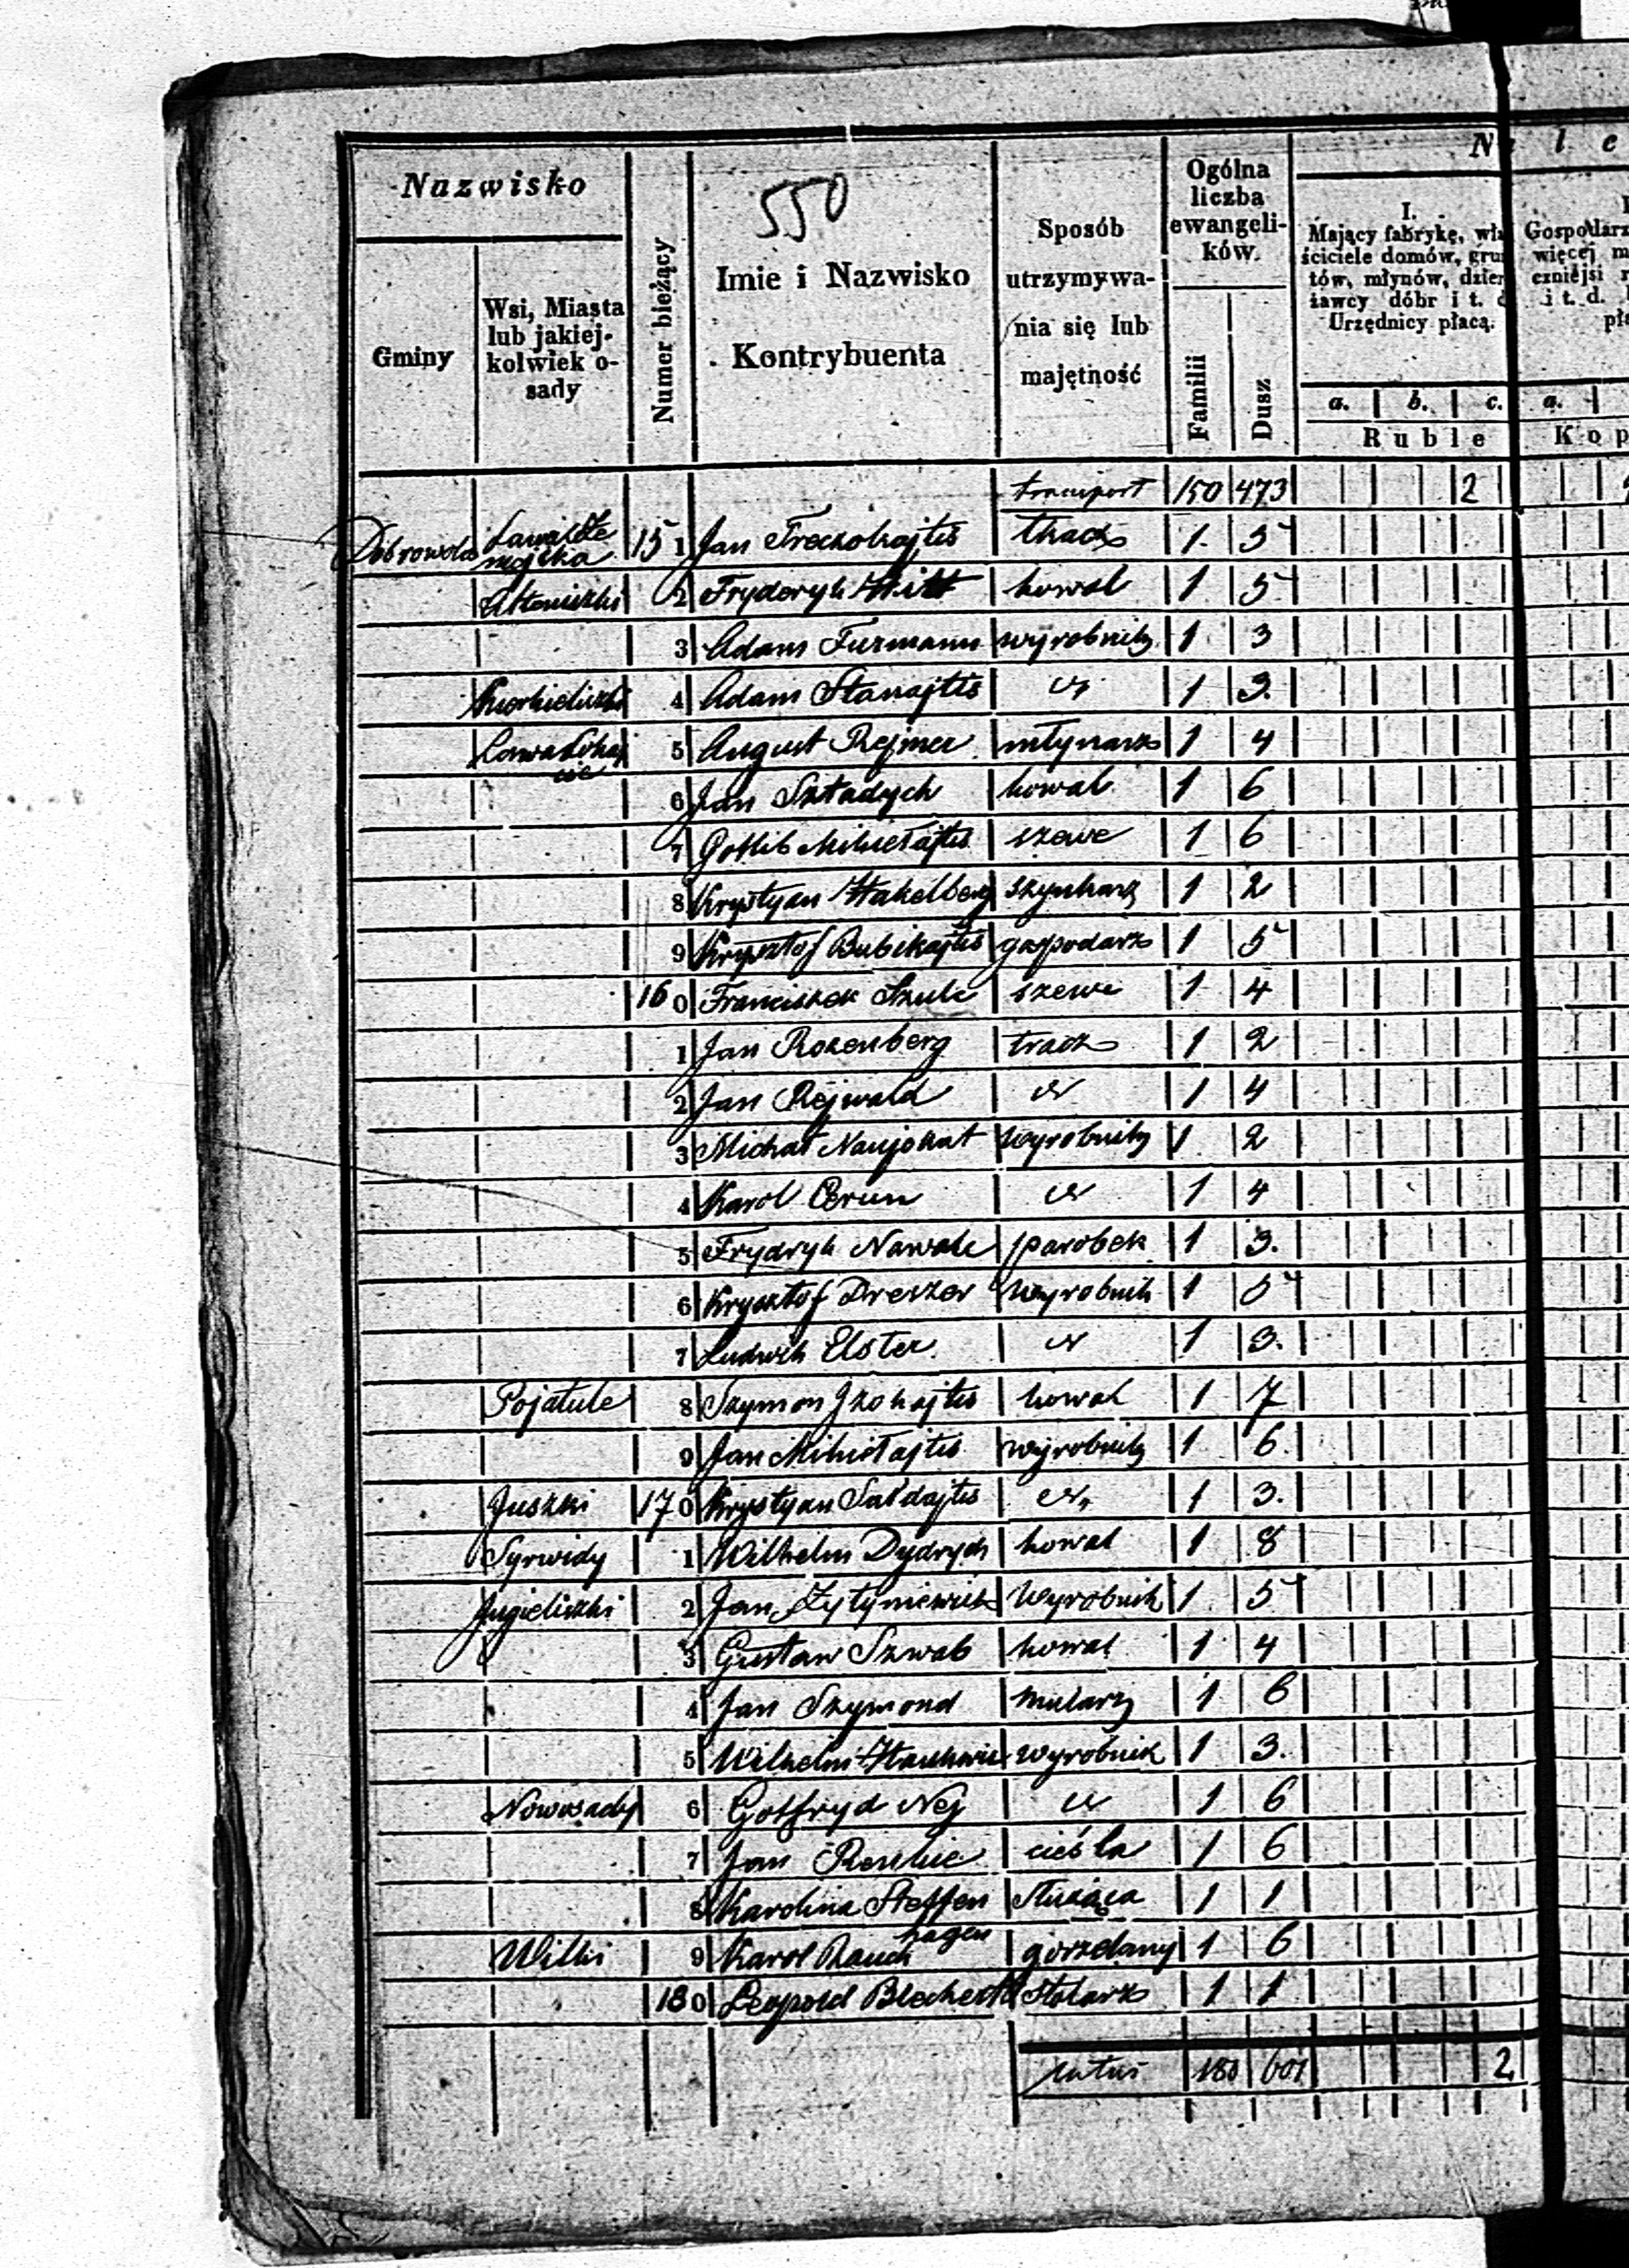 550
Nazwisko
Gminy
Wsi, Miasta
lub jakiej-
kolwiek o-
sady
Numer bieżący
Imie i Nazwisko
Kontrybuenta
Sposób
utrzymywa-
nia się lub
majętność
Ogólna
liczba
ewangeli-
ków.
Familii
Dusz
N l e
I.
Mający fabrykę, wła
ściciele domów, grun
tów, młynów, dzier
żawcy dóbr i t. d
Urzędnicy płacą.
a. b. c.
Ruble
Gospodarz
więcej m
czniejsi r
i t. d.
pła
a.
Kop
transport 150 473 2
Dobrowola 151 Jan Freczokajtis tkacz 1 5
2 Fryderyk Witt kowal 1 5
3 Adam Furmann wyrobnik 1 3
4 Adam Stanajtis 1 3.
5 August Rejmer młynarz 1 4
6 Jan Sztadych kowal 1 6
7 Gotlib Mikiełajtis szewc 1 6
8 Krystyan Hakelberg szynkarz 1 2
9 Krysztof Bubikajtis gospodarz 1 5
160 Franciszek Szulc szewc 1 4
1 Jan Rozenberg tracz 1 2
2 Jan Rejwald 1 4
3 Michał Naujokat wyrobnik 1 2
4 Karol 1 4
5 Frydryk Nawak parobek 1 3.
6 Krysztof Dreszer wyrobnik 1 5
7 Ludwik Elster 1 3.
Pojatule 8 Szymon kowal 1 7
9 Jan Mikiełajtis wyrobnik 1 6
Juszki 170 Krystyan Saldajtis 1 3.
Syrwidy 1 Wilhelm Dydrych kowal 1 8
Jugieliszki 2 Jan Żytyniewicz Wyrobnik 1 5
3 Gustaw Szwab kowal 1 4
4 Jan Szymond mularz 1 6
5 Wilhelm wyrobnik 1 3.
Nowosady 6 Gotfryd Nej 1 6
7 Jan Renkie cieśla 1 6
8 Karolina Steffen służąca 1 1
hagen
Wilki 9 Karol Rauch gorzelany 1 6
180 Leopold Blechert stolarz 1 1
latus 180 601 2